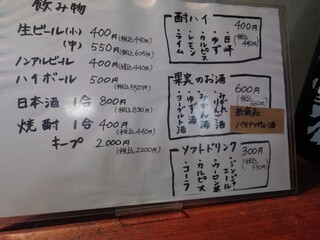 飲み物
生ビール(小) 400円(税込440円)
(中) 550円(税込605円)
ノンアルビール 400円(税込440円)
ハイボール 500円(税込550円)
日本酒 1合 800円(税込880円)
焼酎 1合 400円(税込440円)
キープ 2,000円(税込2200円)
酎ハイ
・巨峰
・ゆず
・カルピス
・レモン
・ライム
400円
(税込440円)
果実のお酒
・みぞれ酒
・みかん酒
・ゆず酒
・ヨーグルト酒
600円
(税込660円)
新商品
パイナップル酒
ソフトドリンク
・ジンジャーエール
・ウーロン茶
・カルピス
・コーラ
300円
(税込330円)